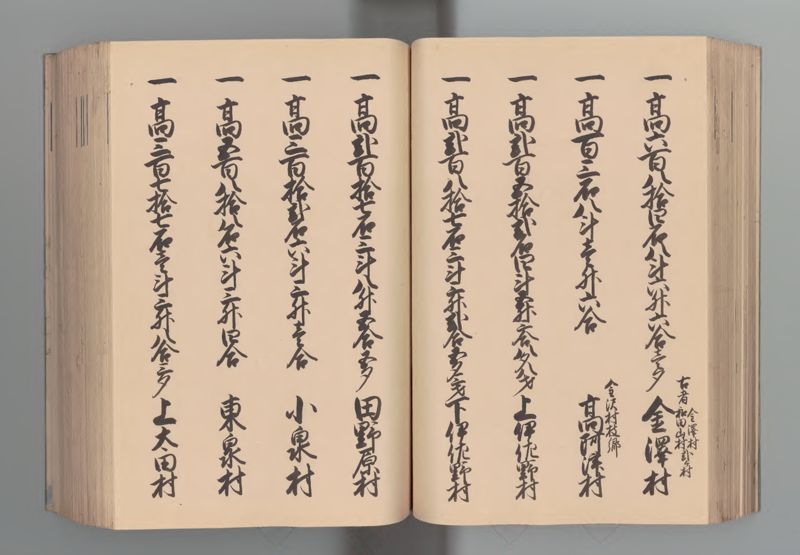 古者 金澤村 和田山村 弐ヶ村
一 高六百八拾四石八斗六升六合壱夕 金澤村
金沢村枝郷
一 高百三石八斗壱升六合 高阿津村
一 高弐百五拾弐石四斗五升六合八夕八才 上伊佐野村
一 高弐百八拾七石三斗三升弐合五夕六才 下伊佐野村
一 高弐百拾七石三斗八升五合五夕 田野原村
一 高三百拾弐石六斗三升壱合 小泉村
一 高五百八拾八石六斗三升四合 東泉村
一 高三百七拾七石壱斗三升八合三夕 上太田村